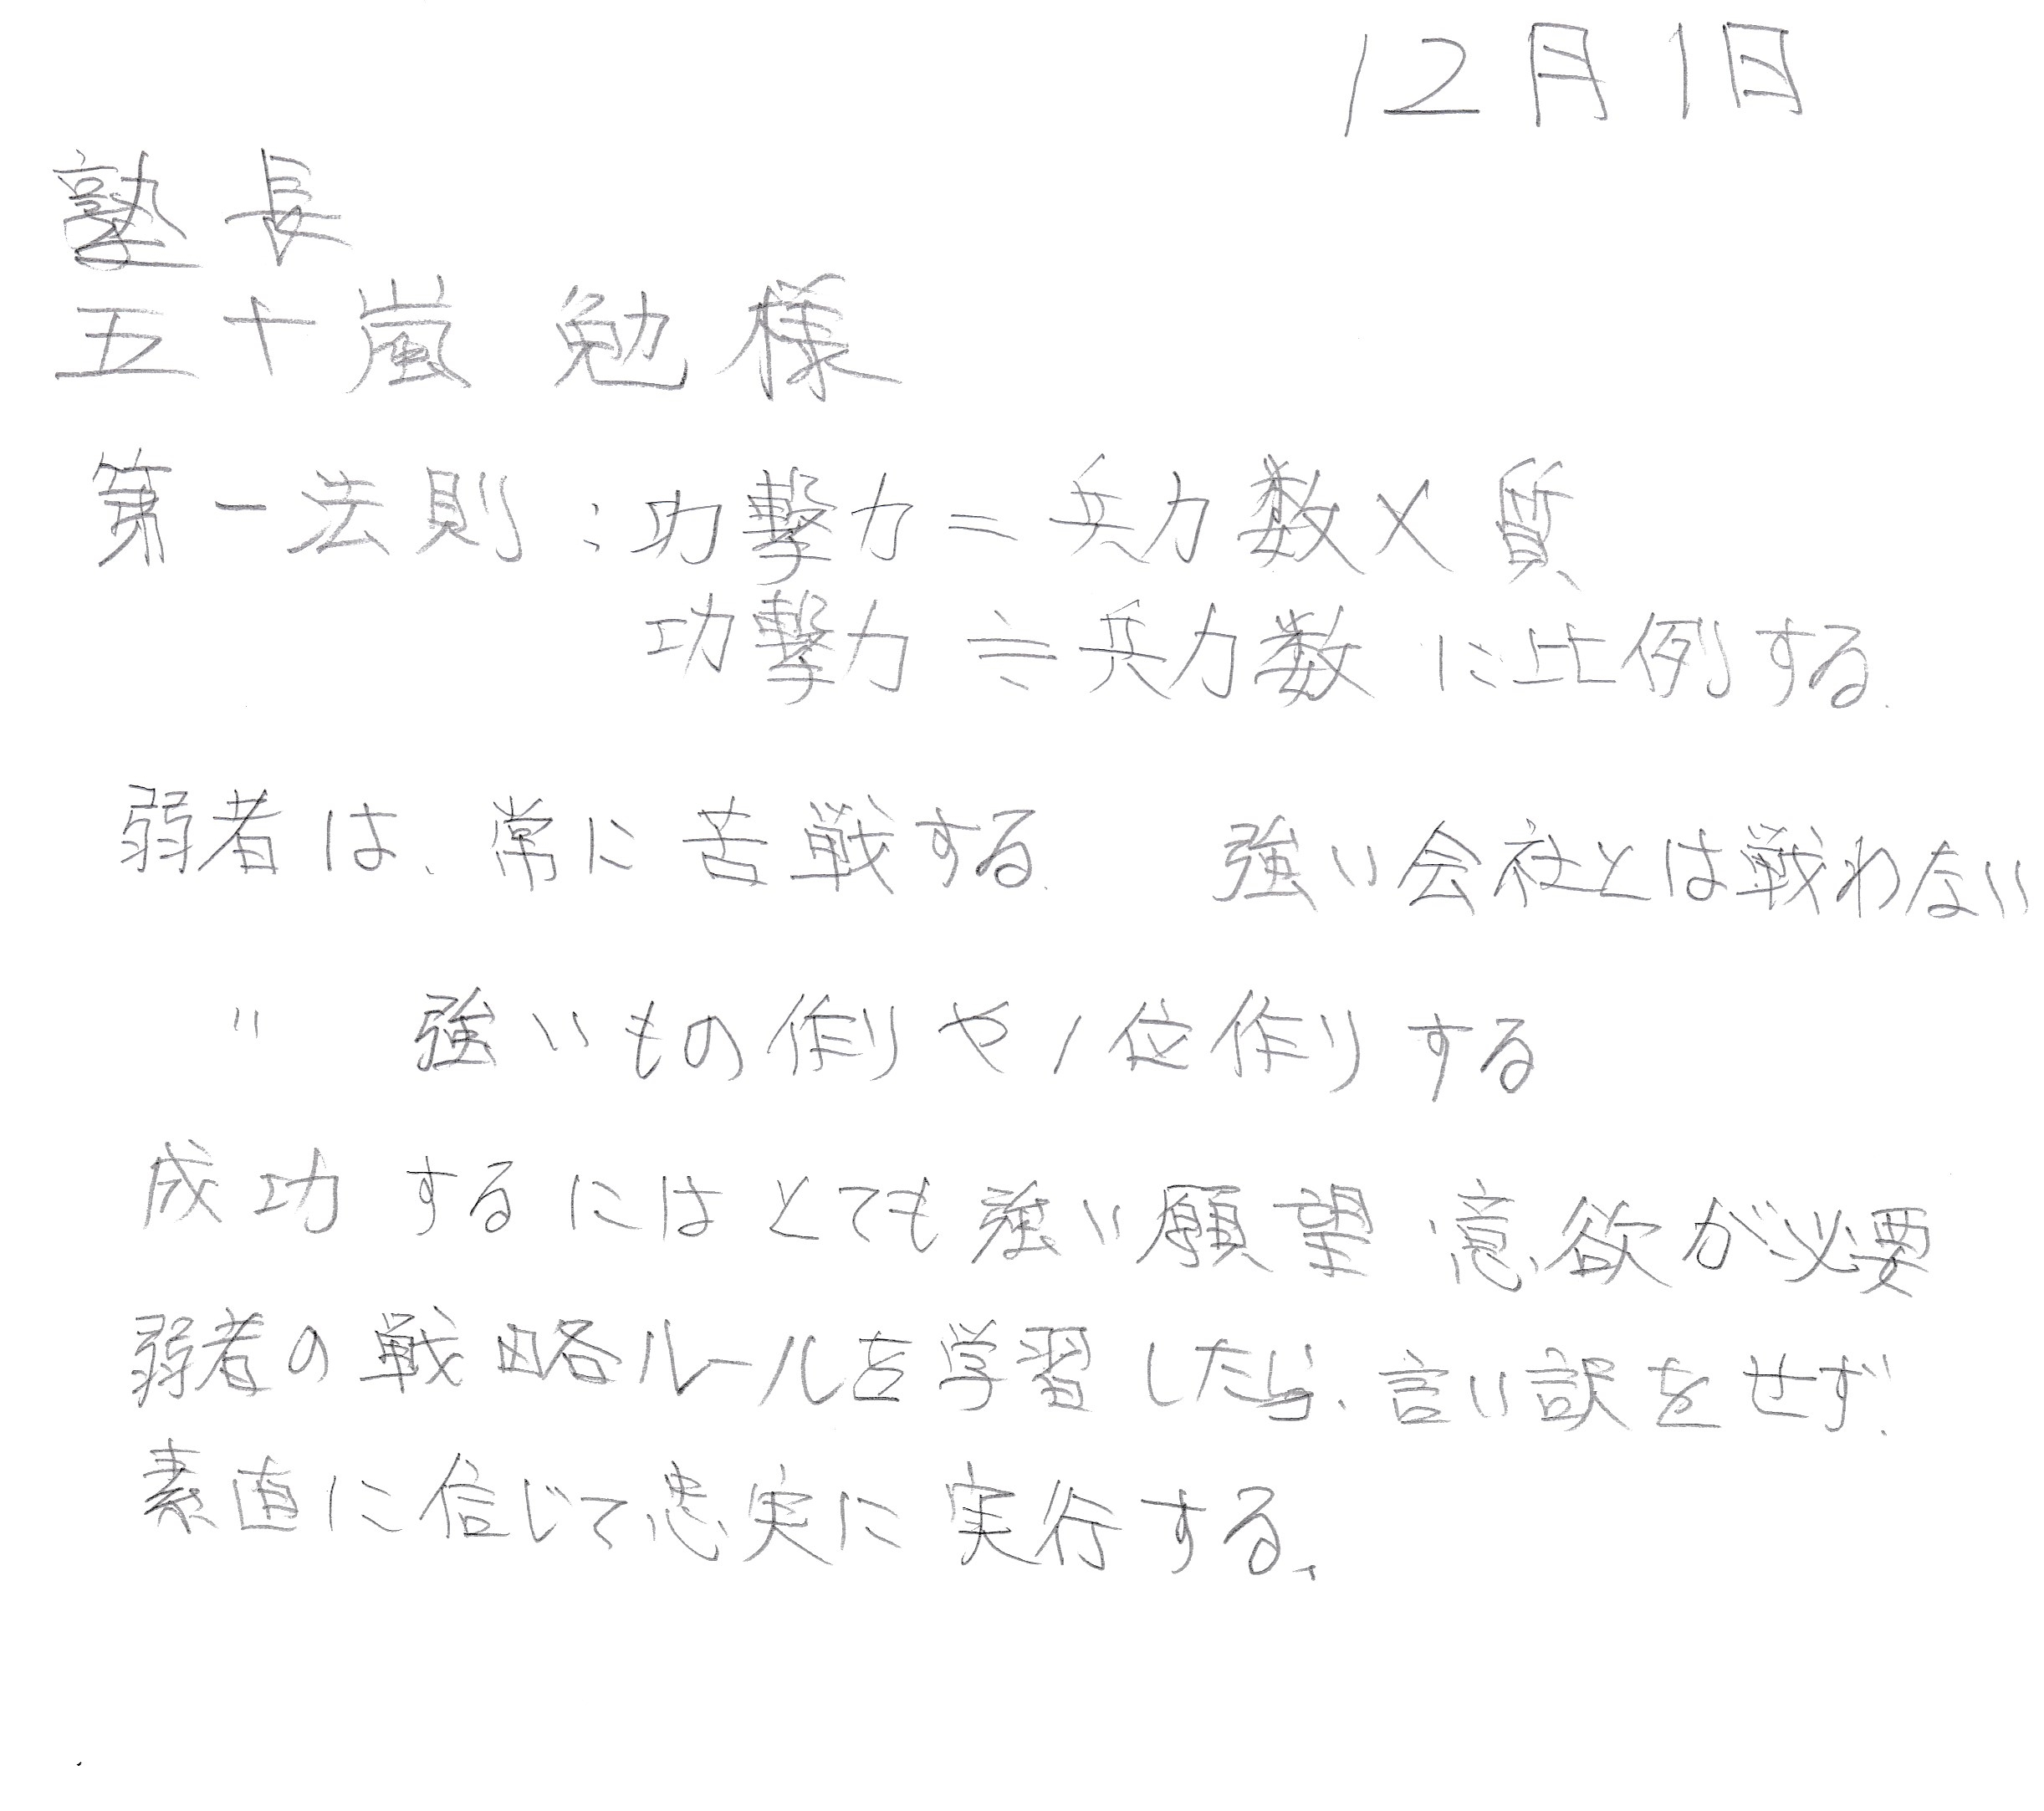 12月1日
塾長
五十嵐 勉様
第一法則:功撃力=兵力数×質
功撃力≒兵力数に比例する.
弱者は、常に苦戦する. 強い会社とは戦わない
〃 強いもの作りや1位作りする
成功するにはとても強い願望 意欲が必要
弱者の戦略ルールを学習したら、言い訳をせず、
素直に信じて忠実に実行する、